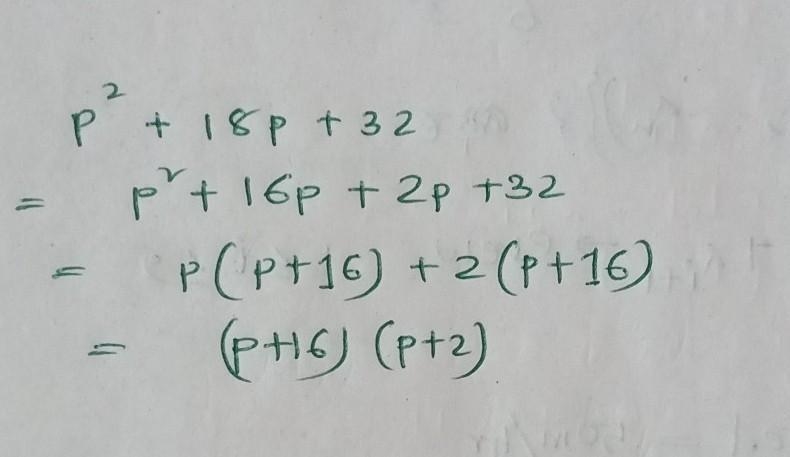 p² + 18p + 32
= p² + 16p + 2p +32
= p(p+16) + 2(p+16)
= (p+16) (p+2)